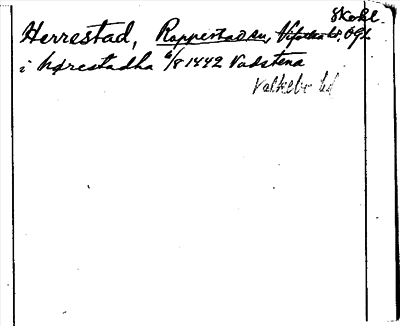 Skokl.
Herrestad, Rappestad sn, Vifolka hd. Ögl.
i hørestadha 6/8 1442 Vadstena
Valkebo hd